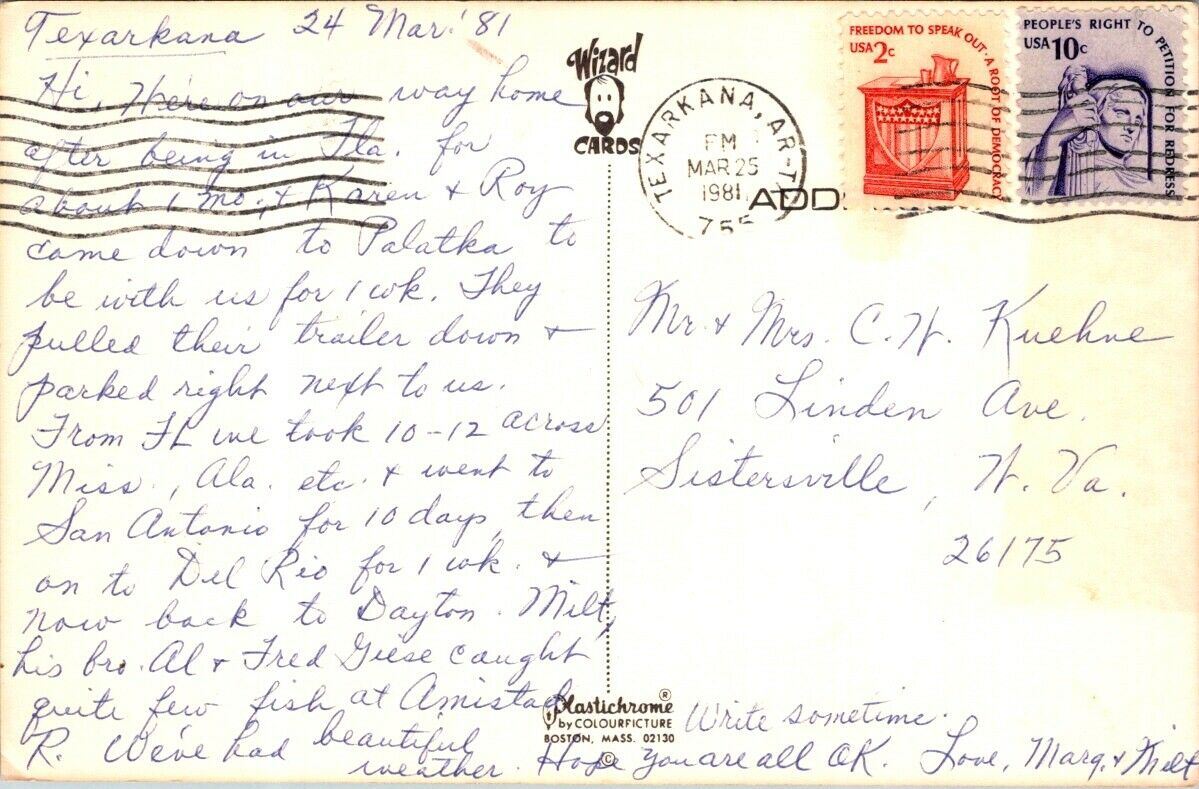 Texarkana 24 Mar. '81
Hi, Here on our way home
after being in Fla. for
about 1 mo., & Karen & Roy
came down to Palatka to
be with us for 1 wk. They
pulled their trailer down &
parked right next to us.
From FL we took 10-12 across
Miss., Ala. etc. & went to
San Antonio for 10 days, then
on to Del Rio for 1 wk. &
now back to Dayton. Milt,
his bro. Al & Fred Giese caught
quite few fish at Amistad
R. We've had beautiful
weather. Hope you are all OK. Love, Marg. & Milt
Write sometime.
Wizard
CARDS
TEXARKANA, AR-TX
PM
MAR 25
1981
755
ADD
FREEDOM TO SPEAK OUT · A ROOT OF DEMOCRACY
USA 2c
PEOPLE'S RIGHT TO PETITION FOR REDRESS
USA 10c
Mr. & Mrs. C. W. Kuehne
501 Linden Ave.
Sistersville, W. Va.
26175
Plastichrome®
by COLOURPICTURE
BOSTON, MASS. 02130
©